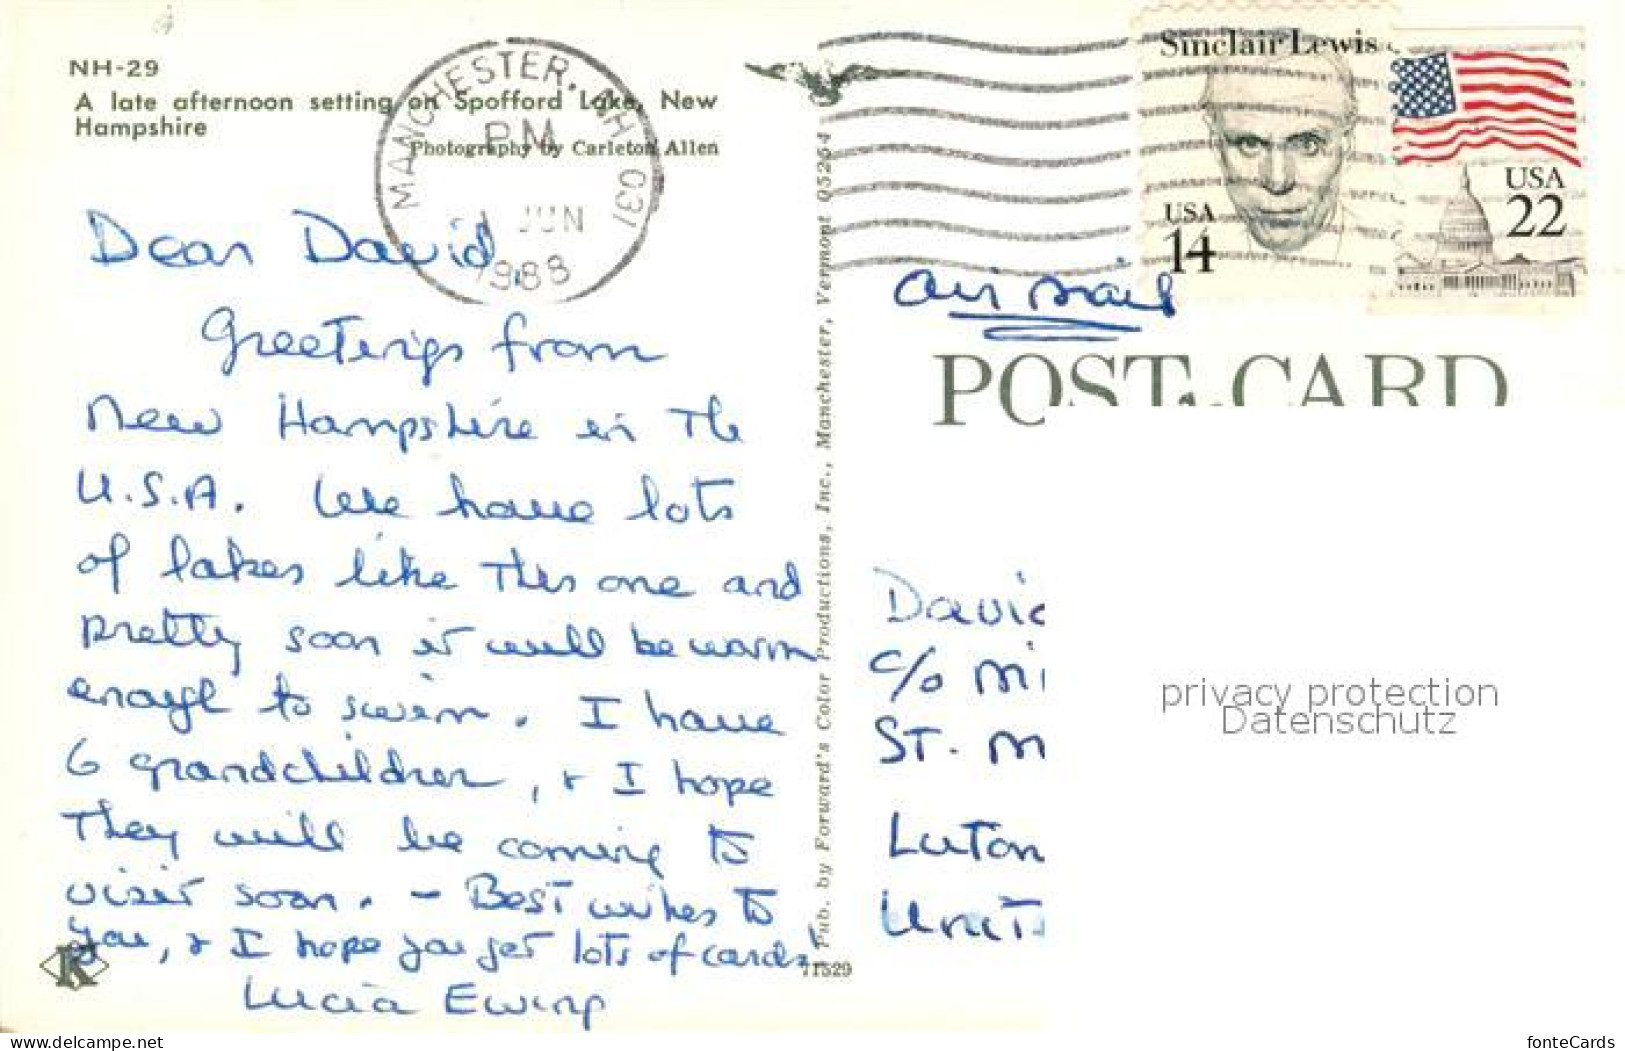 NH-29
A late afternoon setting on Spofford Lake, New
Hampshire
Photography by Carleton Allen
MANCHESTER, NH 031
PM
JUN
1988
Sinclair Lewis
USA
14
USA
22
air mail
POST CARD
Dear David,
Greetings from
New Hampshire in the
U.S.A. We have lots
of lakes like this one and
pretty soon it will be warm
enough to swim. I have
6 grandchildren, & I hope
they will be coming to
visit soon. - Best wishes to
you, & I hope you get lots of cards!
Lucia Ewing
K
Pub. by Forward's Color Productions, Inc., Manchester, Vermont 05254
71529
Davi
c/o Mi
ST. M
Luton
Unit
privacy protection
Datenschutz
www.delcampe.net
fonteCards